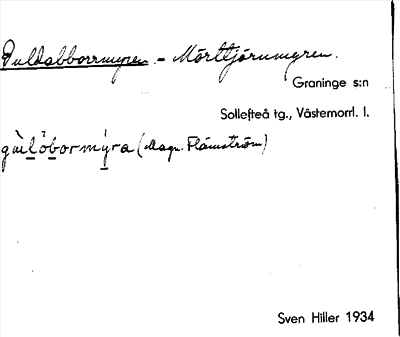 Guldabborrmyren - Mörttjärnmyren.
Graninge s:n
Sollefteå tg., Västernorrl. l.
gùlòbormýra (Magn. Flämström)
Sven Hiller 1934